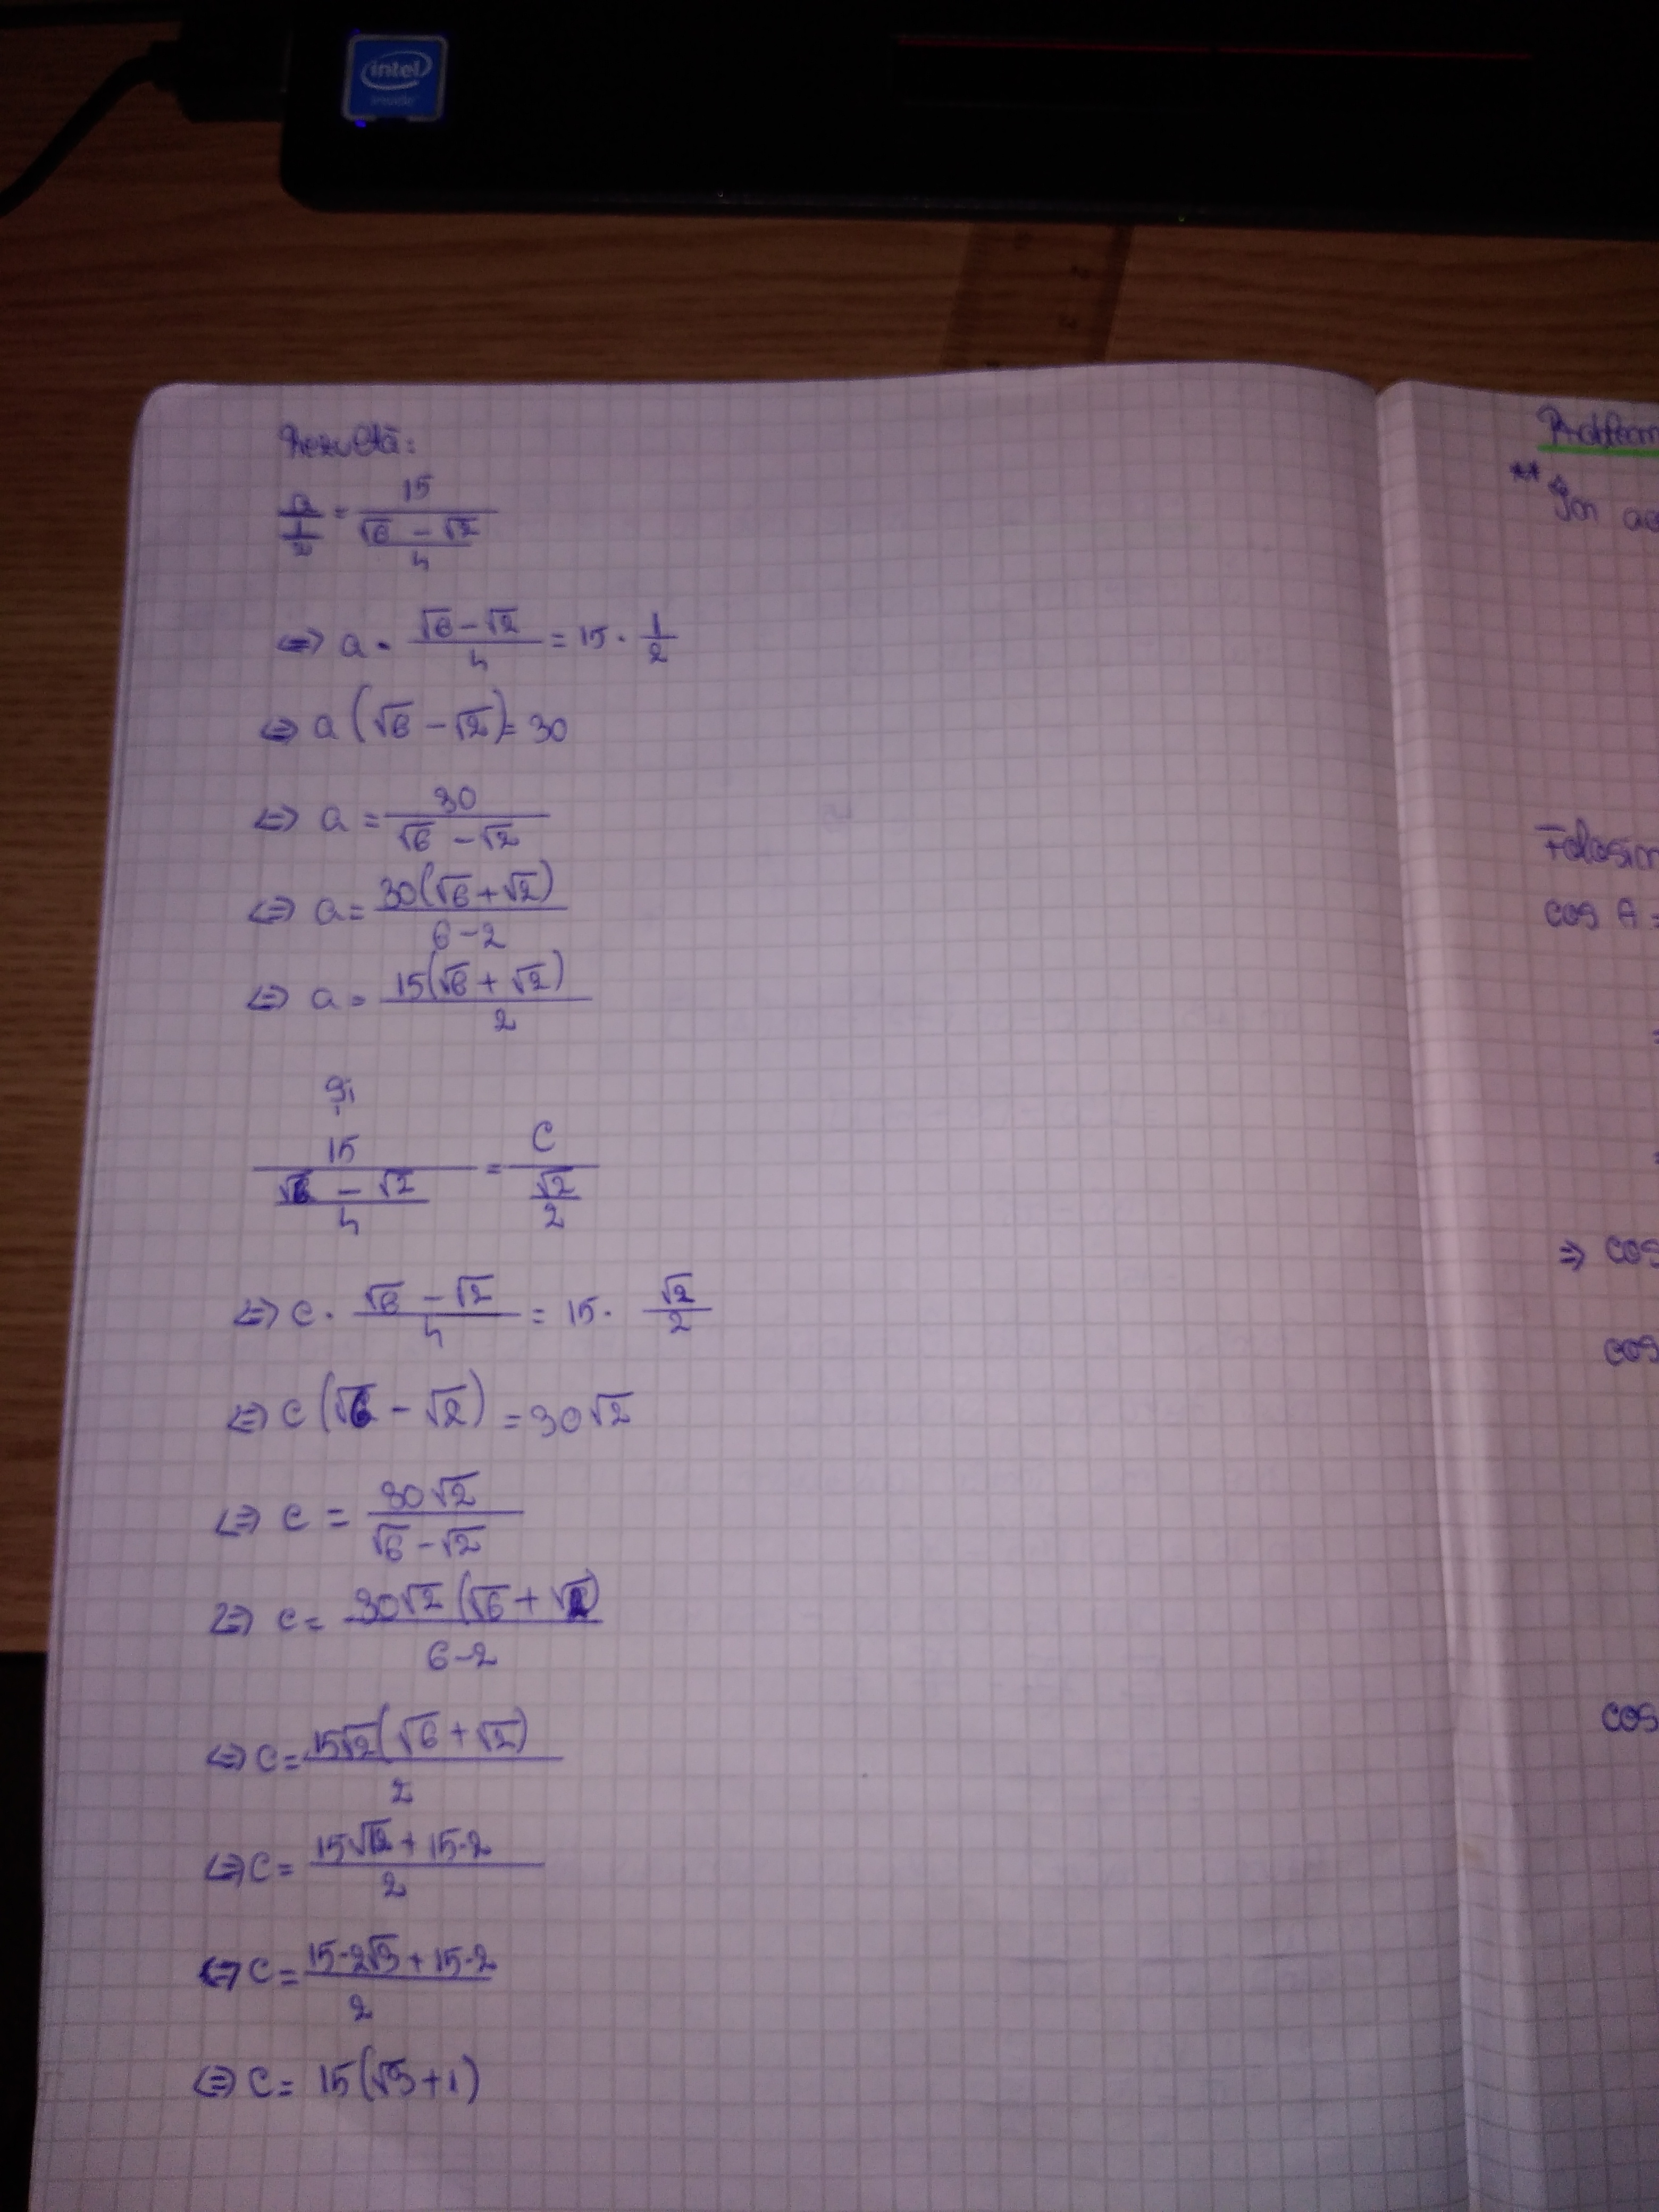 intel
inside
Rezultă:
a/(1/2) = 15/((√6 - √2)/4)
⇔ a · (√6 - √2)/4 = 15 · 1/2
⇔ a (√6 - √2) = 30
⇔ a = 30/(√6 - √2)
⇔ a = 30(√6 + √2)/(6 - 2)
⇔ a = 15(√6 + √2)/2
Și
15/((√6 - √2)/4) = C/(√2/2)
⇔ c · (√6 - √2)/4 = 15 · √2/2
⇔ c (√6 - √2) = 30√2
⇔ c = 30√2/(√6 - √2)
⇔ c = 30√2 (√6 + √2)/(6 - 2)
⇔ c = 15√2 (√6 + √2)/2
⇔ c = (15√12 + 15·2)/2
⇔ c = (15·2√3 + 15·2)/2
⇔ c = 15(√3 + 1)
**
Folosim
cos A =
=
⇒ cos
cos
cos